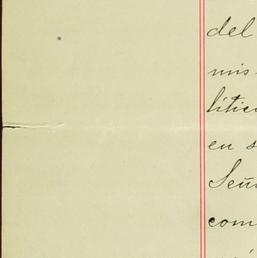 del
mis
litic
en s
Señ
com